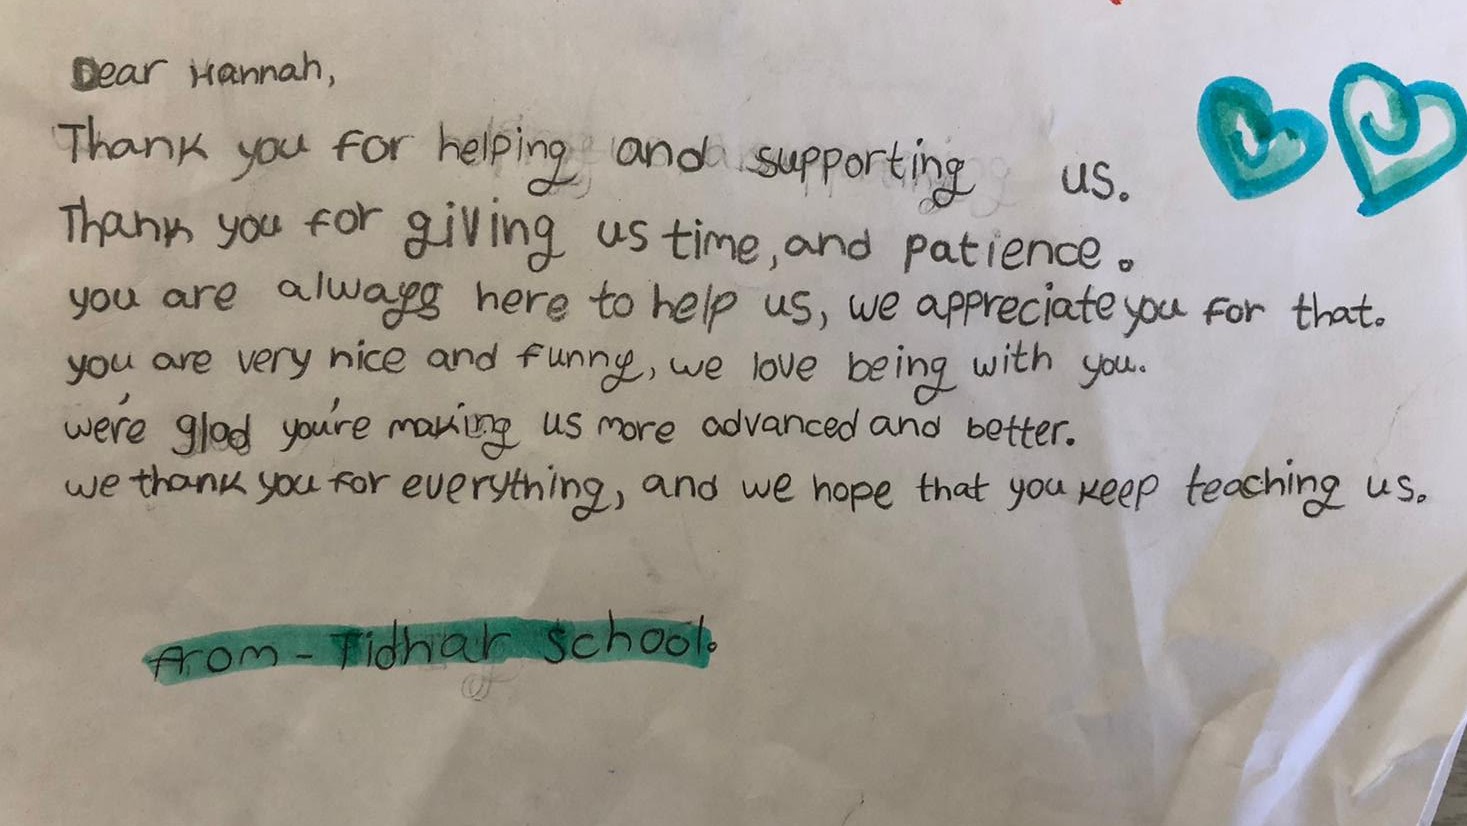 Dear Hannah,
Thank you for helping and supporting us.
Thank you for giving us time, and patience.
you are always here to help us, we appreciate you for that.
you are very nice and funny, we love being with you.
we're glad you're making us more advanced and better.
we thank you for everything, and we hope that you keep teaching us.
from - Tidhar School.